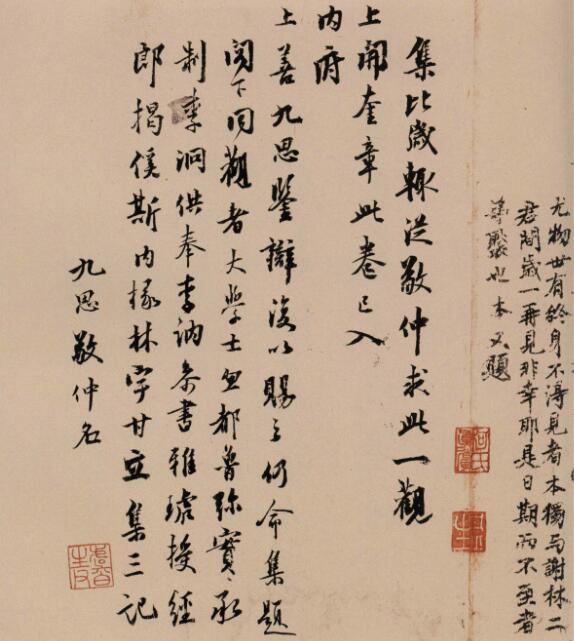 尤物世有終身不得見者本獨与謝林二
君間歲一再見非幸耶是日期而不至者
也本又題
集比歲輒從敬仲求此一觀
上開奎章此卷已入
内府
上善九思鑒辯復以賜之仍命集題
閣下同觀者大學士忽都魯弥實承
制李泂供奉李訥參書雅琥授經
郎揭傒斯内掾林宇甘立集三記
九思敬仲名